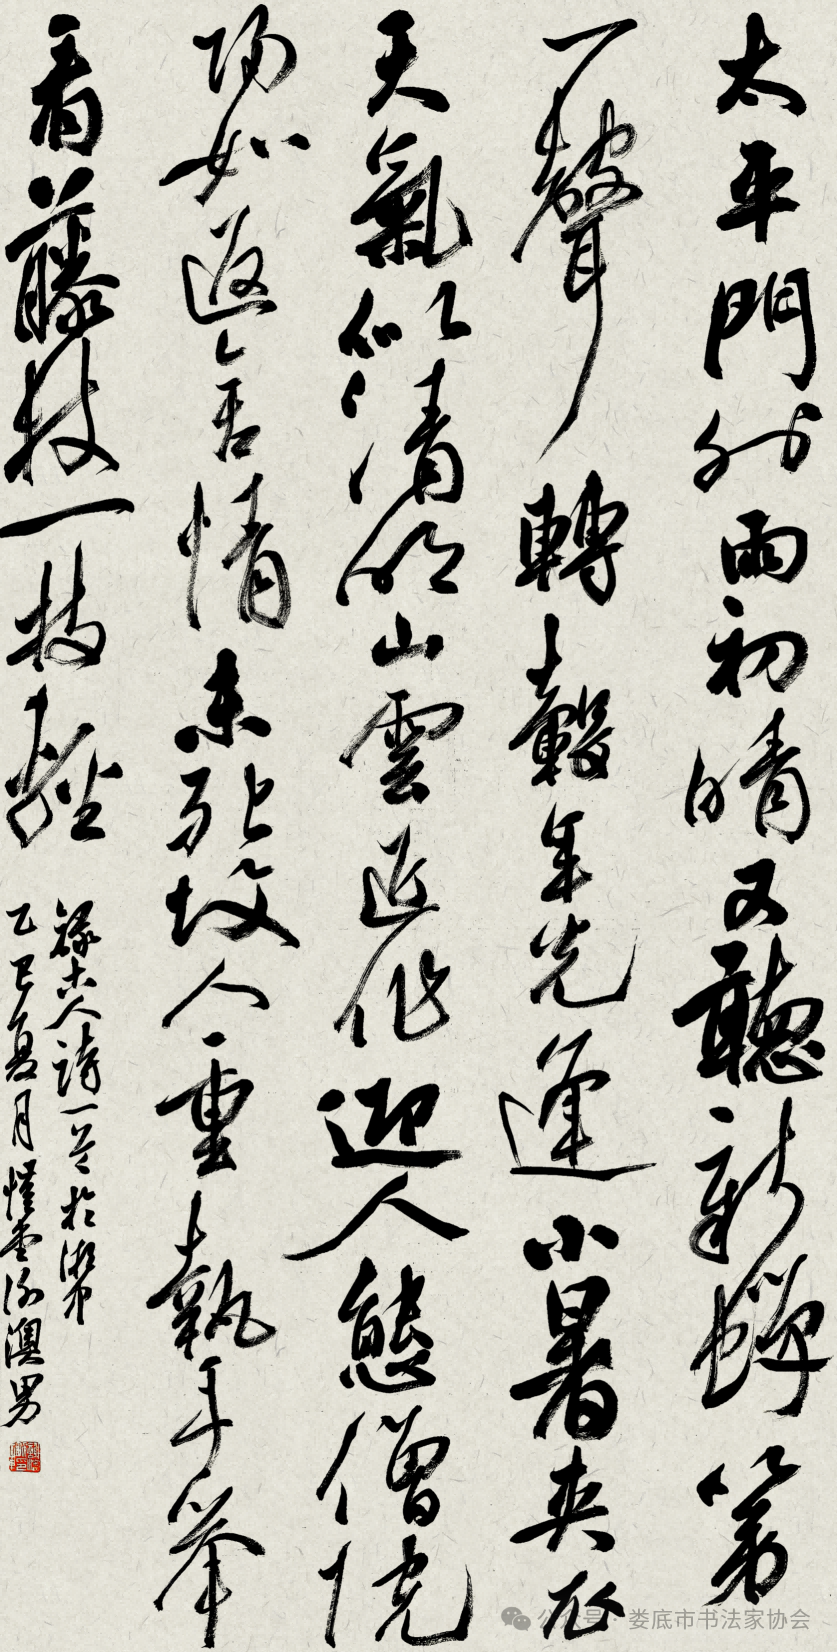 太平門外雨初晴又聽新蟬第
一聲轉轂年光逢小暑夾衣
天氣似清明山雲近作迎人態僧院
歸如返舍情未死故人重執手舉
看藤杖一枝輕
錄古人詩一首於湘中
乙巳夏月 堂 澳男
公众号 · 娄底市书法家协会